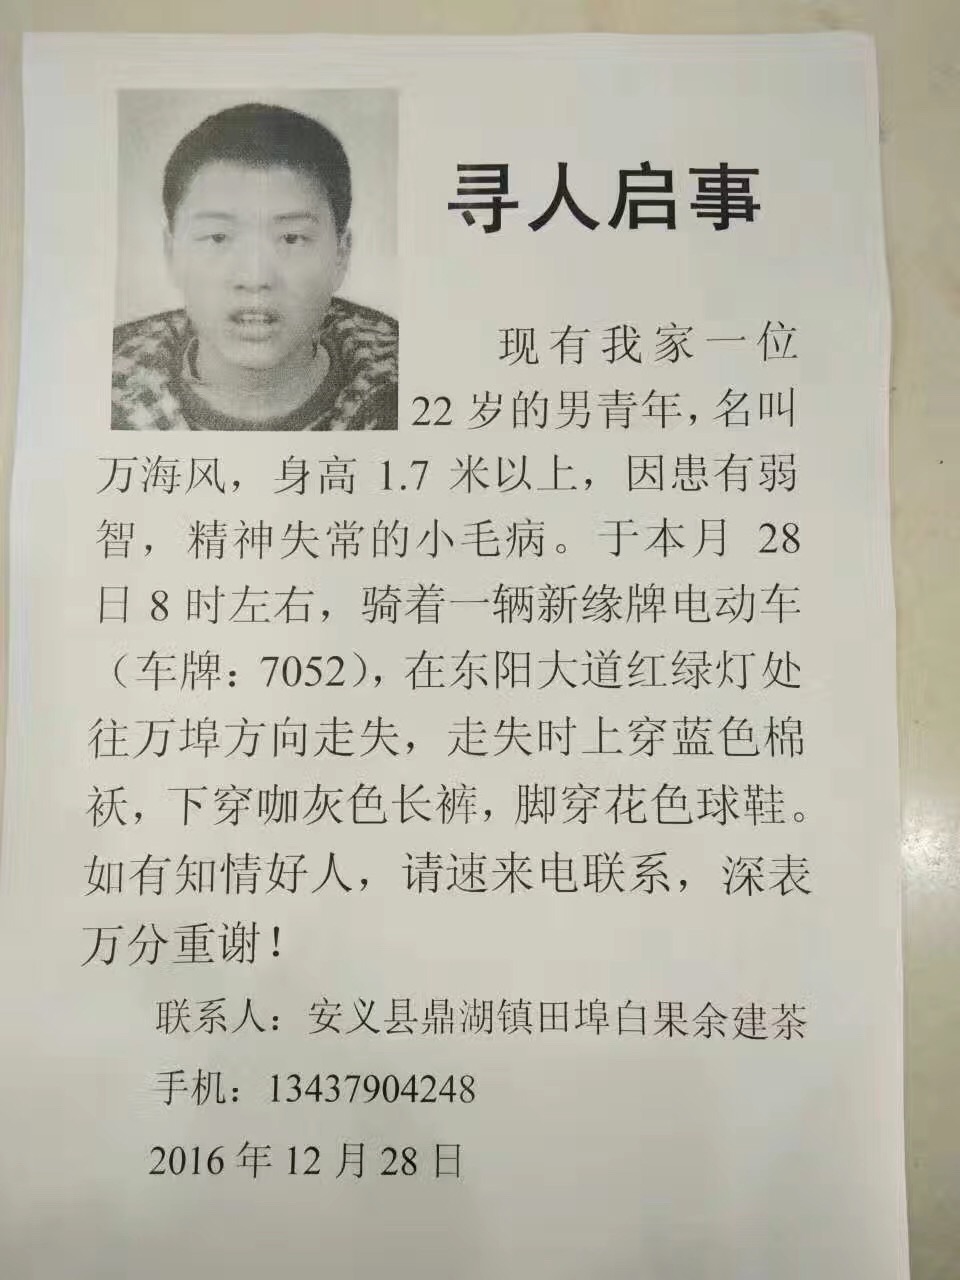 寻人启事
现有我家一位
22岁的男青年，名叫
万海风，身高 1.7 米以上，因患有弱
智，精神失常的小毛病。于本月 28
日 8 时左右，骑着一辆新缘牌电动车
（车牌：7052），在东阳大道红绿灯处
往万埠方向走失，走失时上穿蓝色棉
袄，下穿咖灰色长裤，脚穿花色球鞋。
如有知情好人，请速来电联系，深表
万分重谢！
联系人：安义县鼎湖镇田埠白果余建茶
手机：13437904248
2016 年 12 月 28 日